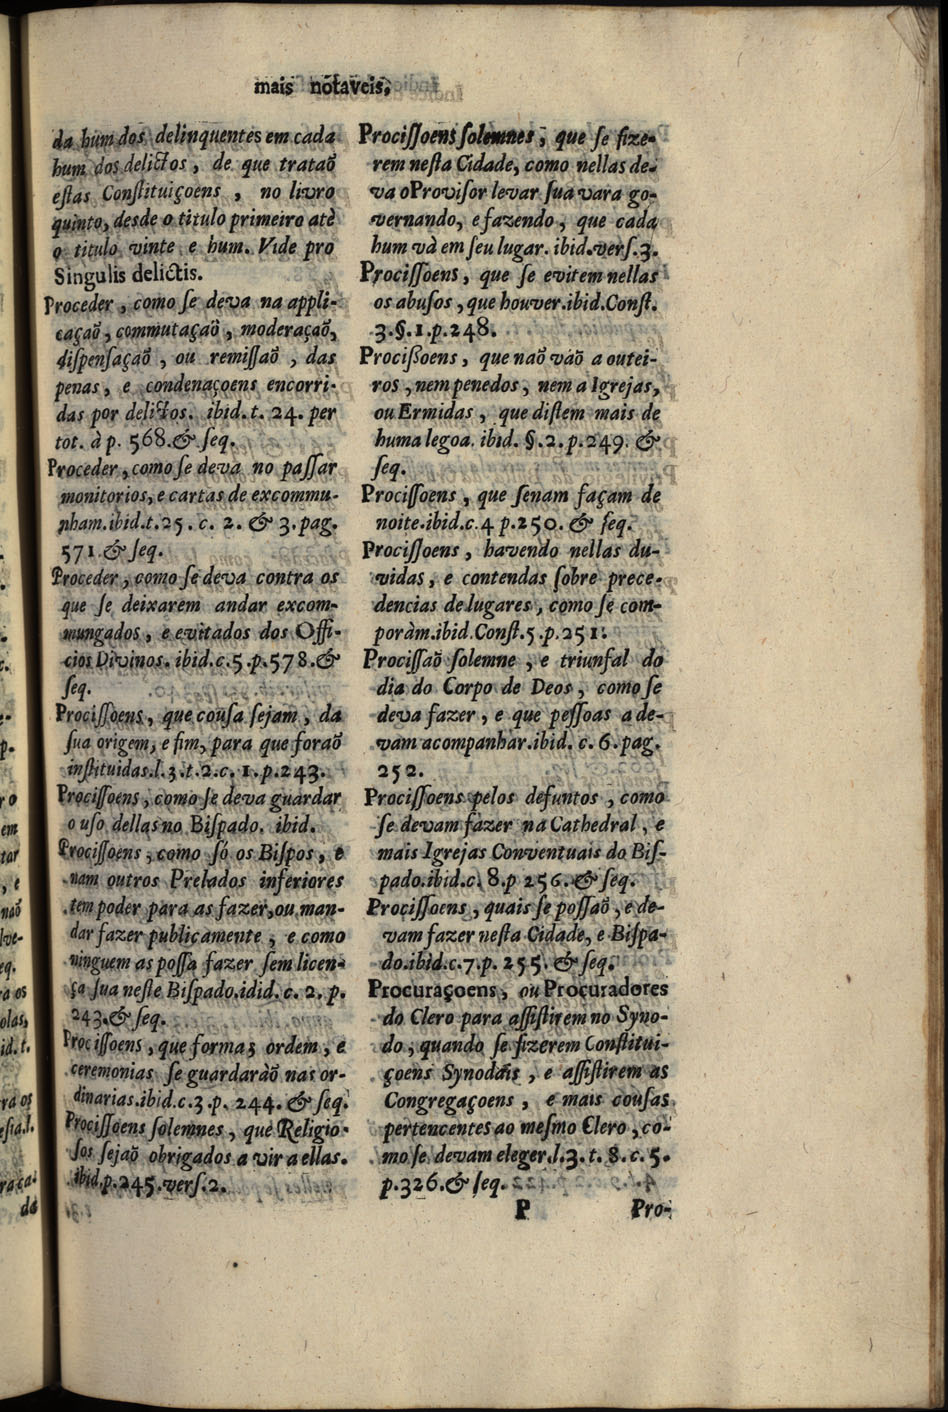 mais nõtaveis,
da hum dos delinquentes em cada
hum dos delictos, de que trataõ
estas Constituiçoens, no livro
quinto, desde o titulo primeiro atè
o titulo vinte e hum. Vide pro
Singulis delictis.
Proceder, como se deva na appli-
caçaõ, commutaçaõ, moderaçaõ,
dispensaçaõ, ou remissaõ, das
penas, e condenaçoens encorri-
das por delictos. ibid. t. 24. per
tot. à p. 568. & seq.
Proceder, como se deva no passar
monitorios, e cartas de excommu-
nham. ibid. t. 25. c. 2. & 3. pag.
571. & seq.
Proceder, como se deva contra os
que se deixarem andar excom-
mungados, e evitados dos Offi-
cios Divinos. ibid. c. 5. p. 578. &
seq.
Procissoens, que cousa sejam, da
sua origem, e fim, para que foraõ
instituidas. l. 3. t. 2. c. 1. p. 243.
Procissoens, como se deva guardar
o uso dellas no Bispado. ibid.
Procissoens, como só os Bispos, e
nam outros Prelados inferiores
tem poder para as fazer, ou man-
dar fazer publicamente, e como
ninguem as possa fazer sem licen-
ça sua neste Bispado. idid. c. 2. p.
243. & seq.
Procissoens, que forma, ordem, e
ceremonias se guardaràõ nas or-
dinarias. ibid. c. 3. p. 244. & seq.
Procissoens solemnes, que Religio-
sos sejaõ obrigados a vir a ellas.
ibid. p. 245. vers. 2.
Procissoens solemnes, que se fize-
rem nesta Cidade, como nellas de-
va o Provisor levar sua vara go-
vernando, e fazendo, que cada
hum và em seu lugar. ibid. vers. 3.
Procissoens, que se evitem nellas
os abusos, que houver. ibid. Const.
3. §. 1. p. 248.
Procissoens, que naõ vaõ a outei-
ros, nem penedos, nem a Igrejas,
ou Ermidas, que distem mais de
huma legoa. ibid. §. 2. p. 249. &
seq.
Procissoens, que senam façam de
noite. ibid. c. 4 p. 250. & seq.
Procissoens, havendo nellas du-
vidas, e contendas sobre prece-
dencias de lugares, como se com-
poràm. ibid. Const. 5. p. 251.
Procissaõ solemne, e triunfal do
dia do Corpo de Deos, como se
deva fazer, e que pessoas a de-
vam acompanhar. ibid. c. 6. pag.
252.
Procissoens pelos defuntos, como
se devam fazer na Cathedral, e
mais Igrejas Conventuais do Bis-
pado. ibid. c. 8. p 256. & seq.
Procissoens, quais se possaõ, e de-
vam fazer nesta Cidade, e Bispa-
do. ibid. c. 7. p. 255. & seq.
Procuraçoens, ou Procuradores
do Clero para assistirem no Syno-
do, quando se fizerem Constitui-
çoens Synodais, e assistirem as
Congregaçoens, e mais cousas
pertencentes ao mesmo Clero, co-
mo se devam eleger. l. 3. t. 8. c. 5.
p. 326. & seq.
P Pro-